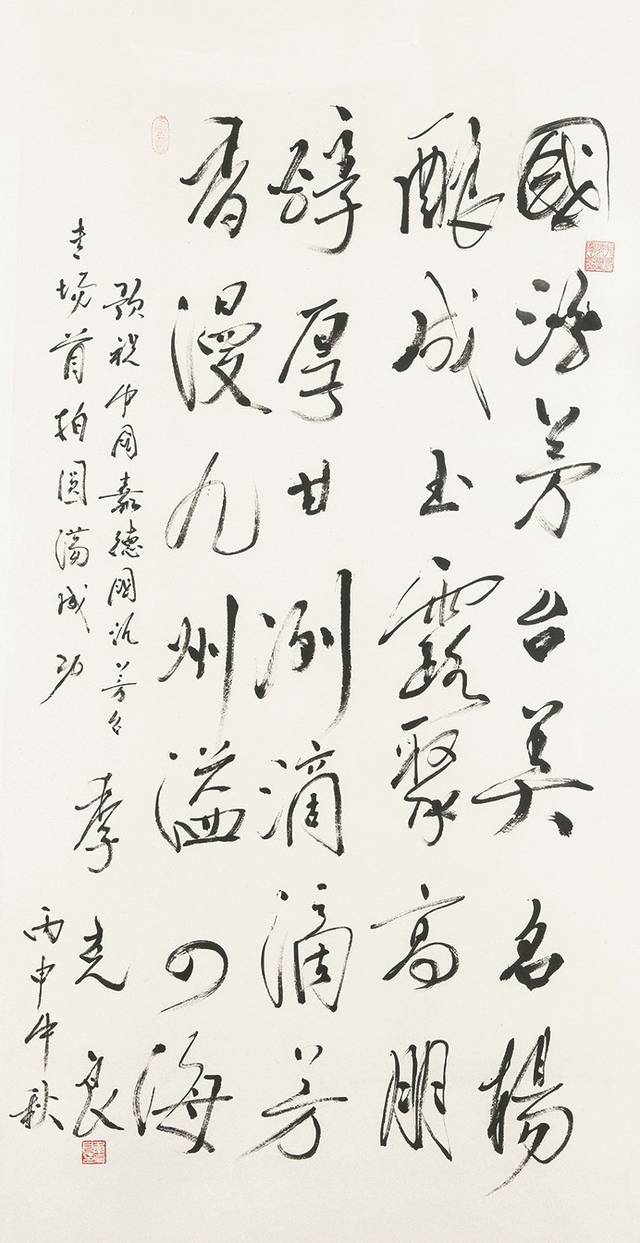 國酒茅台美名楊
釀成玉露聚高朋
醇厚甘洌滴滴芳
香漫九州溢四海
預祝中國嘉德國酒茅台
专場首拍圆滿成功
李克良
丙申中秋